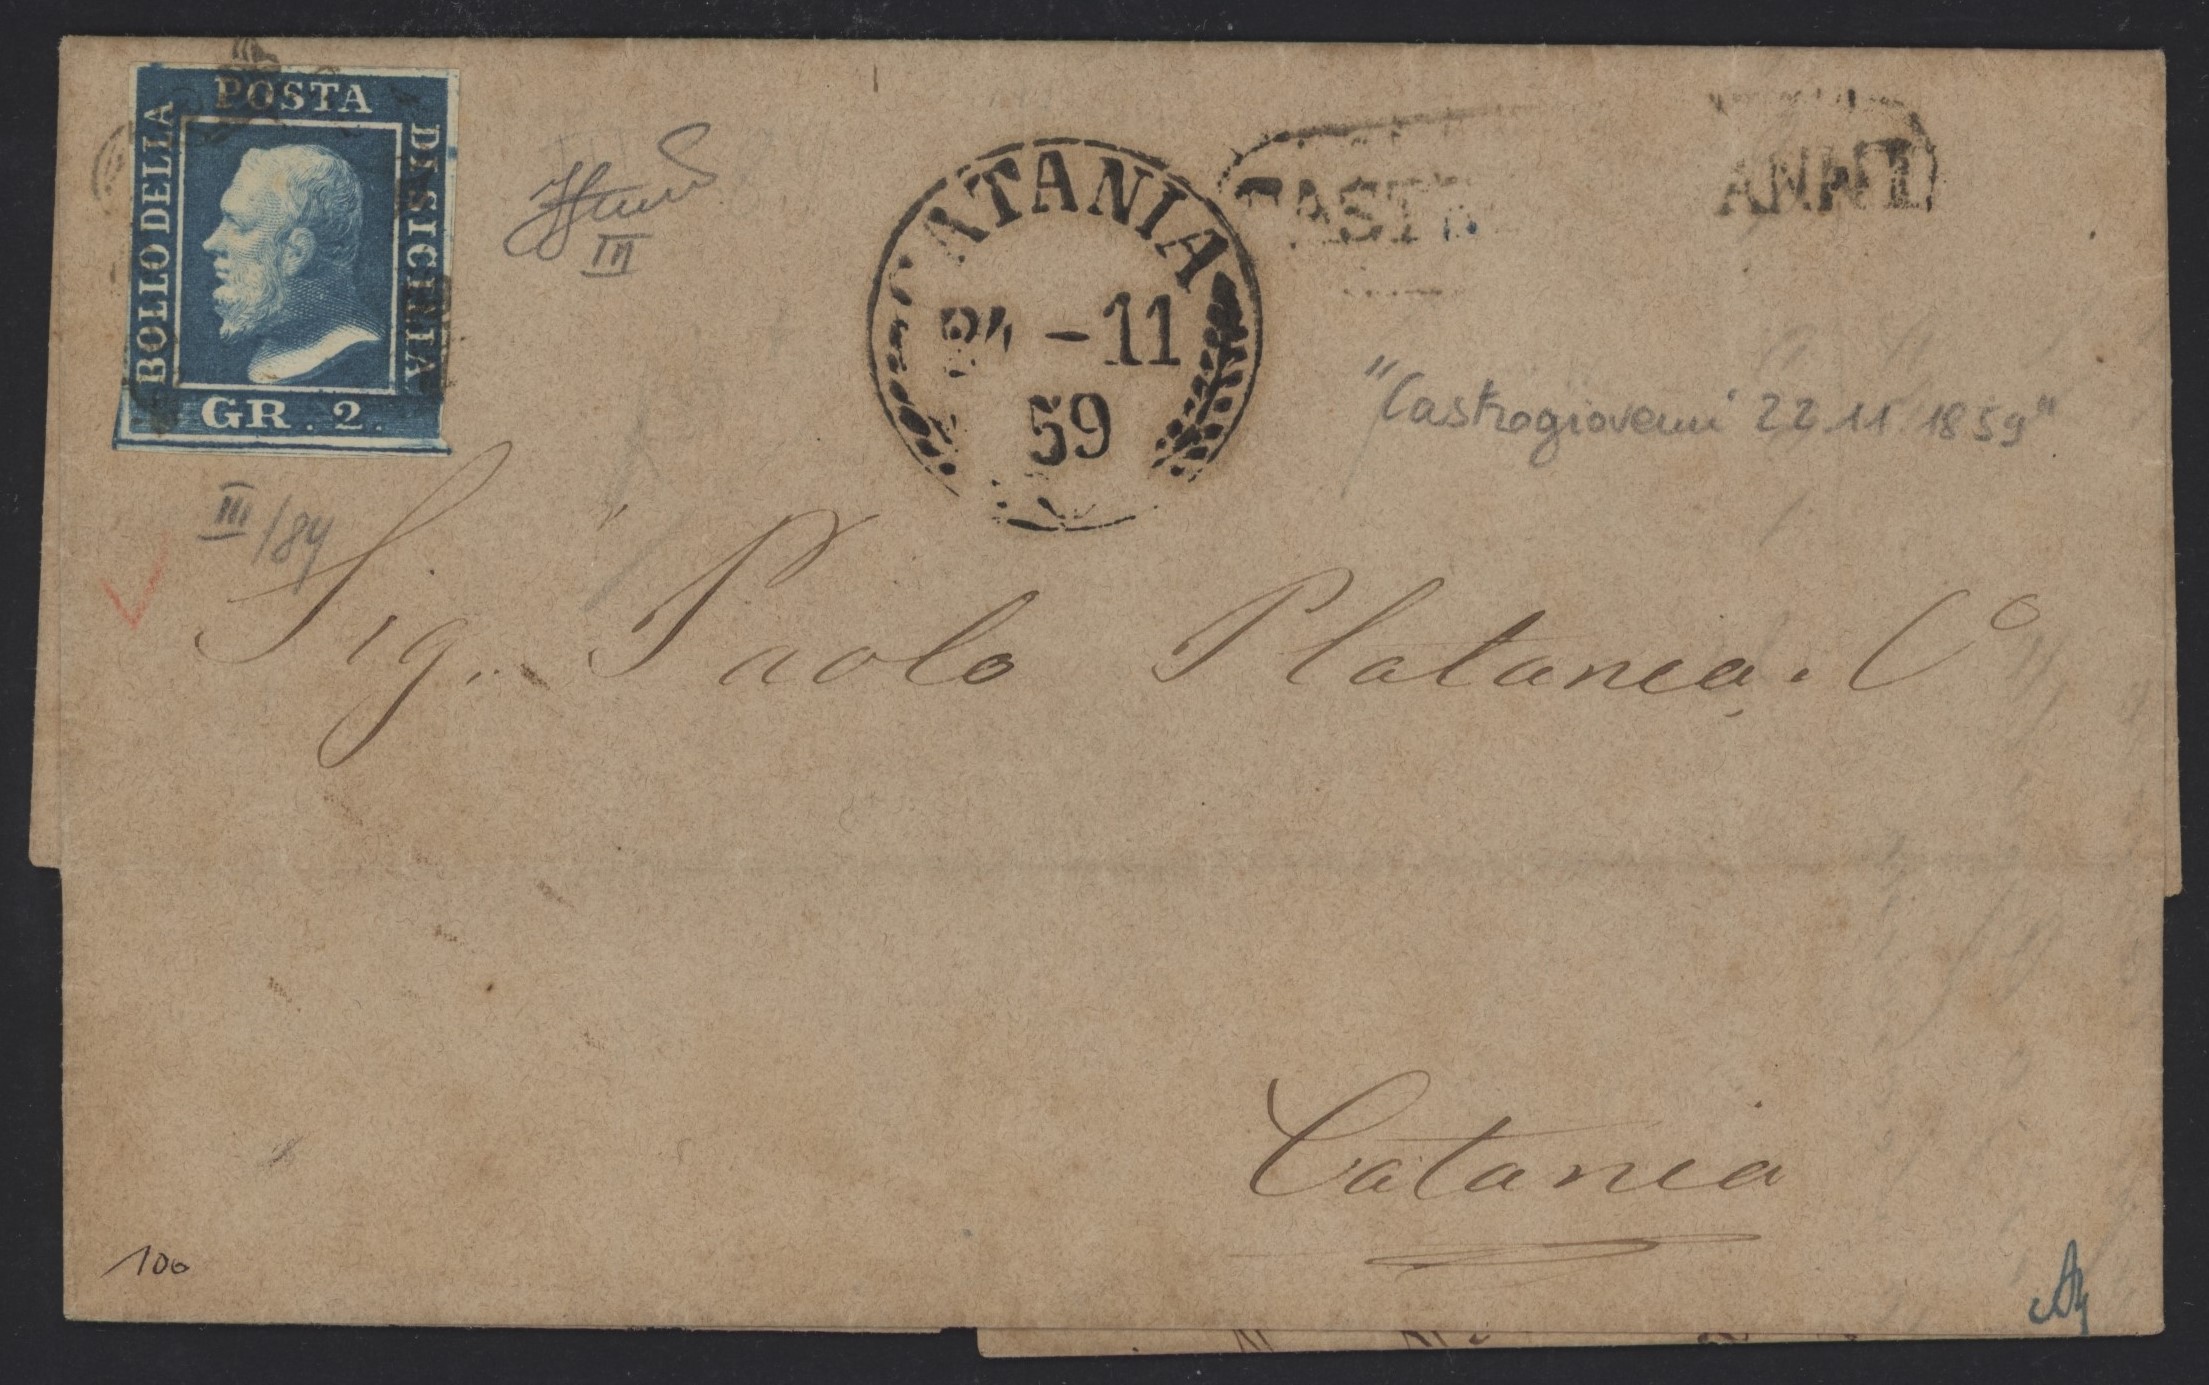 POSTA
BOLLO DELLA
DI SICILIA
GR. 2.
III
ATANIA
24 - 11
59
CAST ANNI
"Castrogiovanni 22.11.1859"
III/84
Sig. Paolo Platania. Co
Catania
100